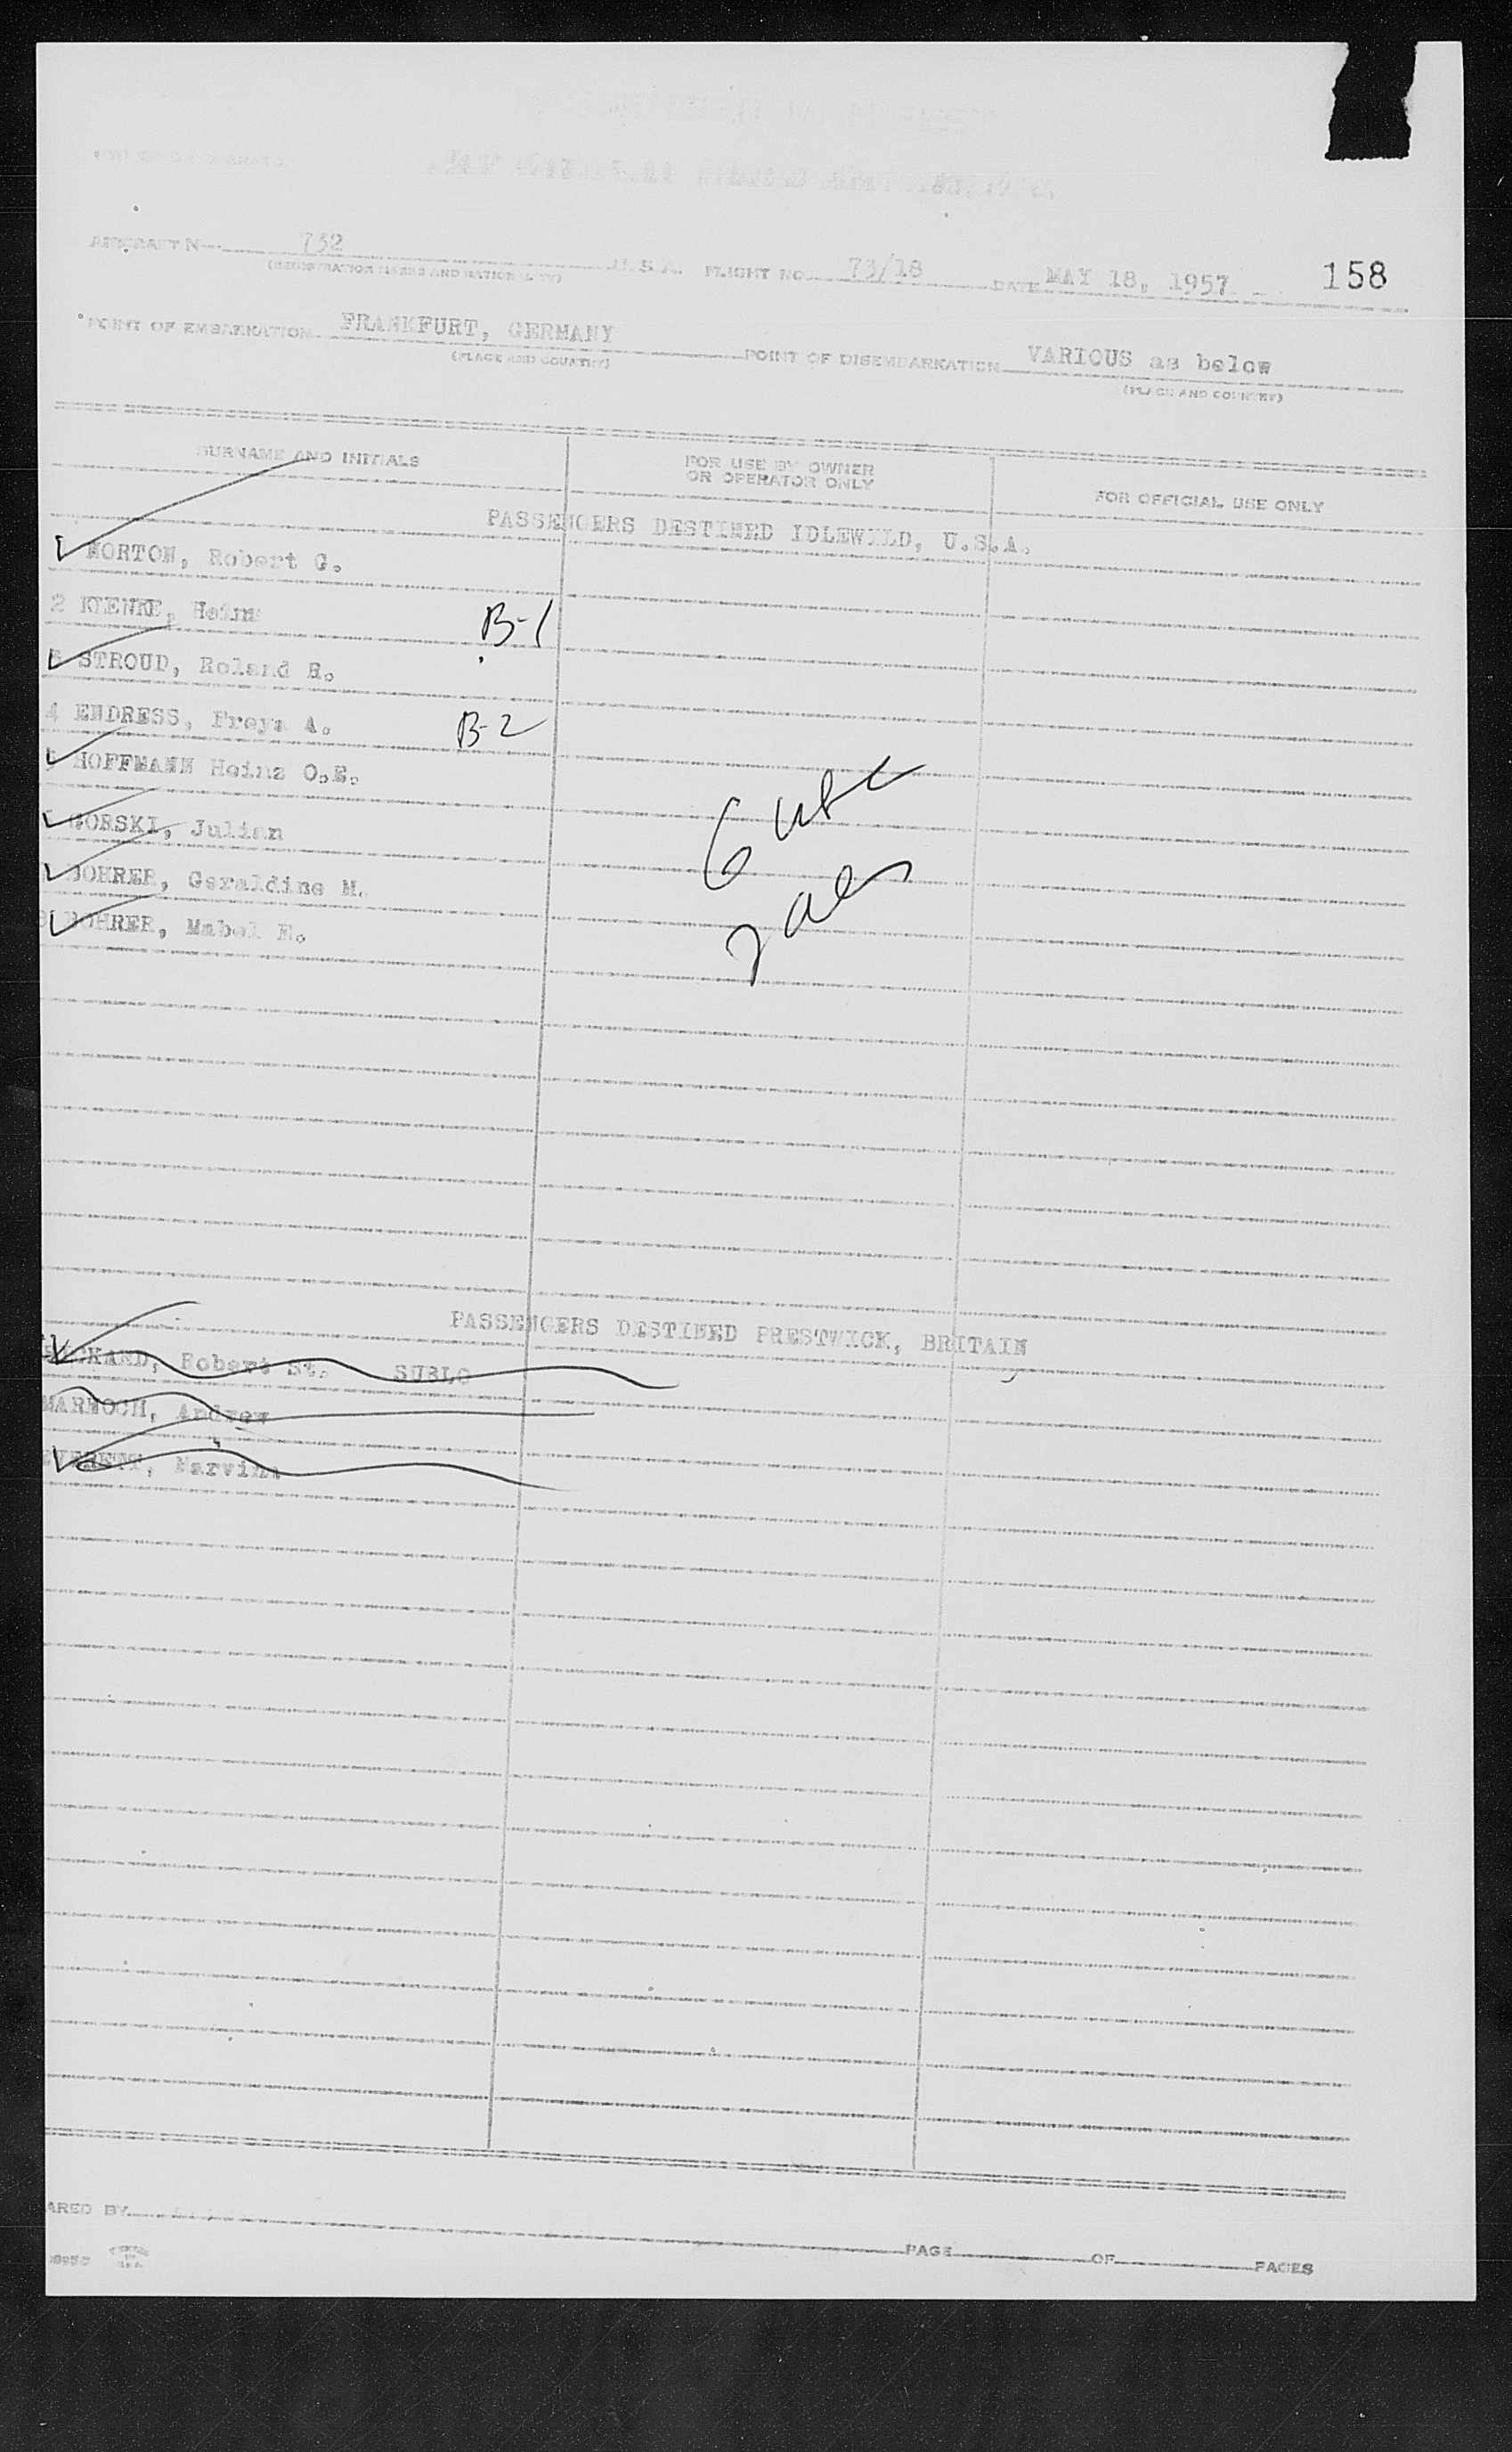 AIRCRAFT N 732 U.S.A. FLIGHT NO. 73/18 DATE MAY 18, 1957 158
(REGISTRATION MARKS AND NATIONALITY)
POINT OF EMBARKATION FRANKFURT, GERMANY POINT OF DISEMBARKATION VARIOUS as below
(PLACE AND COUNTRY) (PLACE AND COUNTRY)
SURNAME AND INITIALS FOR USE BY OWNER OR OPERATOR ONLY FOR OFFICIAL USE ONLY
PASSENGERS DESTINED IDLEWILD, U.S.A.
Robert G.
2 B-1
STROUD, Roland
4 ENDRESS, Freya A. B-2
HOFFMANN Heinz O.E.
GORSKI, Julian
Geraldine M.
Mabel
6
2
PASSENGERS DESTINED PRESTWICK, BRITAIN
Robert St. SUBLO
MARNOCH, Andrew
ARED BY PAGE OF PAGES